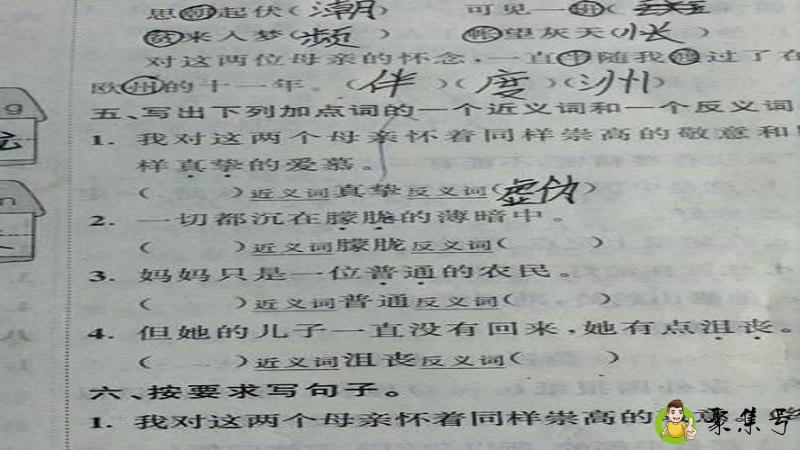 思朝起伏(潮) 可见一
来人梦(频) 帐望灰天(怅)
对这两位母亲的怀念，一直半随我渡过了在
欧州的十一年。(伴)(度)(洲)
五、写出下列加点词的一个近义词和一个反义词
1. 我对这两个母亲怀着同样崇高的敬意和
样真挚的爱慕。
( )近义词真挚反义词(虚伪)
2. 一切都沉在朦胧的薄暗中。
( )近义词朦胧反义词( )
3. 妈妈只是一位普通的农民。
( )近义词普通反义词( )
4. 但她的儿子一直没有回来，她有点沮丧。
( )近义词沮丧反义词( )
六、按要求写句子。
1. 我对这两个母亲怀着同样崇高的意。
g
n
聚集号